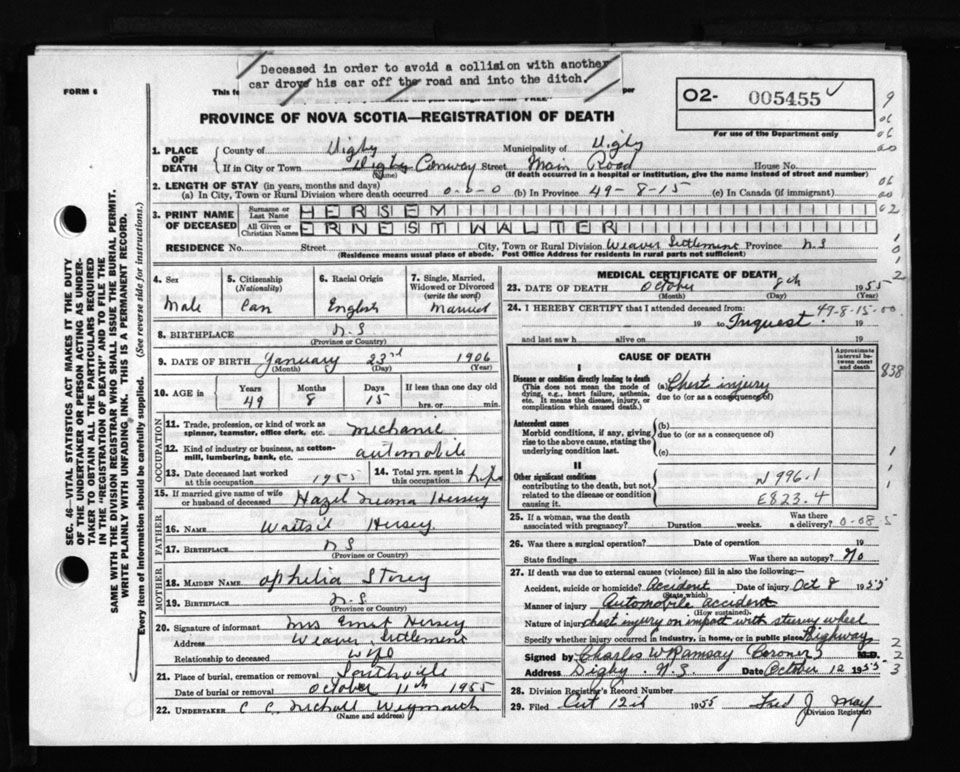 Deceased in order to avoid a collision with another
car drove his car off the road and into the ditch.
FORM 6
This fo
per
O2- 005455
PROVINCE OF NOVA SCOTIA—REGISTRATION OF DEATH
For use of the Department only
1. PLACE OF DEATH
County of Digby Municipality of Digby
If in City or Town Digby Conway Street Main Road House No.
(Name) (If death occurred in a hospital or institution, give the name instead of street and number)
2. LENGTH OF STAY (in years, months and days)
(a) In City, Town or Rural Division where death occurred 0-0-0 (b) In Province 49-8-15 (c) In Canada (if immigrant)
3. PRINT NAME OF DECEASED
Surname or Last Name HERSEY
All Given or Christian Names ERNEST WALTER
RESIDENCE No. Street City, Town or Rural Division Weaver Settlement Province N.S
(Residence means usual place of abode. Post Office Address for residents in rural parts not sufficient)
4. Sex Male
5. Citizenship (Nationality) Can
6. Racial Origin English
7. Single, Married, Widowed or Divorced (write the word) Married
8. BIRTHPLACE N S
(Province or Country)
9. DATE OF BIRTH January 23rd 1906
(Month) (Day) (Year)
10. AGE in Years 49 Months 8 Days 15 If less than one day old hrs. or min.
OCCUPATION
11. Trade, profession, or kind of work as spinner, teamster, office clerk, etc. mechanic
12. Kind of industry or business, as cotton-mill, lumbering, bank, etc. automobile
13. Date deceased last worked at this occupation 1955
14. Total yrs. spent in this occupation life
15. If married give name of wife or husband of deceased Hazel Hersey
FATHER
16. NAME Hersey
17. BIRTHPLACE N S
(Province or Country)
MOTHER
18. MAIDEN NAME Ophelia Storey
19. BIRTHPLACE N.S
(Province or Country)
20. Signature of informant Mrs Ernest Hersey
Address Weaver Settlement
Relationship to deceased Wife
21. Place of burial, cremation or removal Southville
Date of burial or removal October 11th 1955
22. UNDERTAKER C C. Nicholl Weymouth
(Name and address)
MEDICAL CERTIFICATE OF DEATH
23. DATE OF DEATH October 8th 1955
(Month) (Day) (Year)
24. I HEREBY CERTIFY that I attended deceased from: 49-8-15-00
19 to Inquest 19
and last saw h alive on 19
CAUSE OF DEATH
Approximate interval between onset and death
I
Disease or condition directly leading to death (a) Chest injury
(This does not mean the mode of dying, e.g., heart failure, asthenia, etc. It means the disease, injury, or complication which caused death.)
due to (or as a consequence of)
Antecedent causes
Morbid conditions, if any, giving rise to the above cause, stating the underlying condition last.
(b)
due to (or as a consequence of)
(c)
II
Other significant conditions
contributing to the death, but not related to the disease or condition causing it.
N996.1
E823.4
838
25. If a woman, was the death associated with pregnancy? Duration weeks. Was there a delivery? 0-08 5
26. Was there a surgical operation? Date of operation 19
State findings Was there an autopsy? No
27. If death was due to external causes (violence) fill in also the following:—
Accident, suicide or homicide? Accident Date of injury Oct 8 1955
(State which)
Manner of injury Automobile accident
(How sustained)
Nature of injury chest injury on impact with steering wheel
Specify whether injury occurred in industry, in home, or in public place Highway
Signed by Charles W Ramsay Coroner M.D.
Address Digby N.S. Date October 12 1955
28. Division Registrar's Record Number
29. Filed Oct 12th 1955 Fred J May
(Division Registrar)
SEC. 46—VITAL STATISTICS ACT MAKES IT THE DUTY
OF THE UNDERTAKER OR PERSON ACTING AS UNDER-
TAKER TO OBTAIN ALL THE PARTICULARS REQUIRED
IN THE "REGISTRATION OF DEATH" AND TO FILE THE
SAME WITH THE DIVISION REGISTRAR WHO SHALL ISSUE THE BURIAL PERMIT.
WRITE PLAINLY WITH UNFADING INK. THIS IS A PERMANENT RECORD.
Every item of information should be carefully supplied. (See reverse side for instructions.)